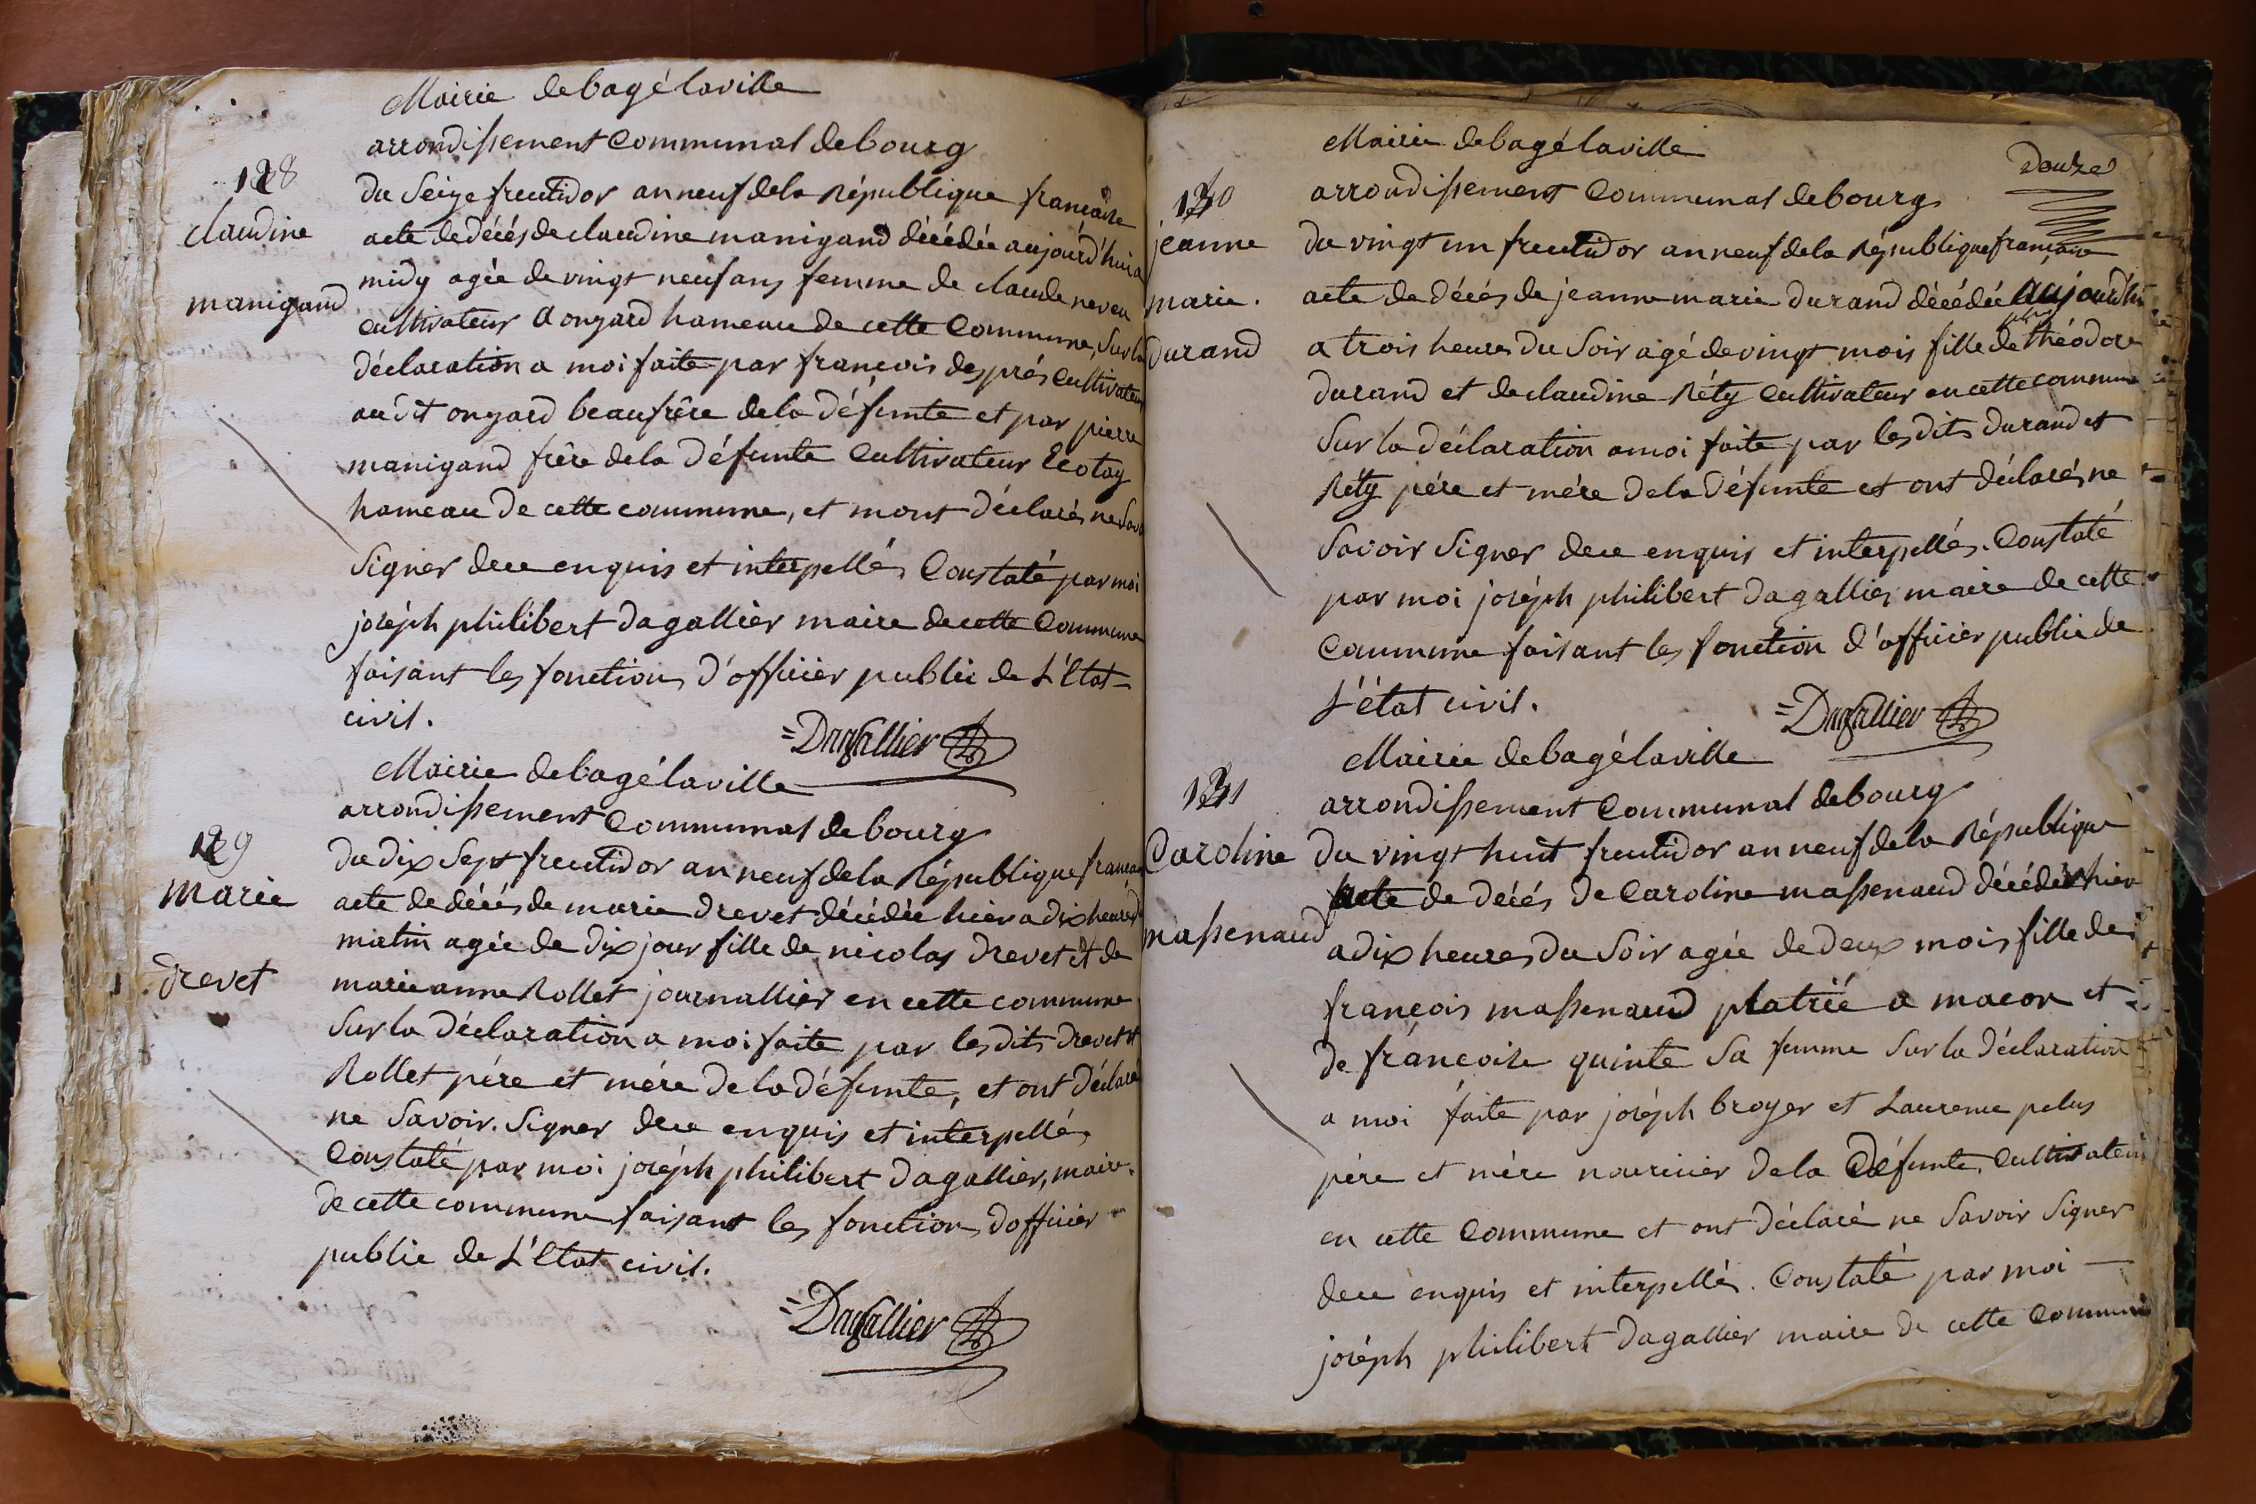 Mairie de bagé la ville
arrondissement Communal de bourg
128
du Seize fructidor an neuf de la République francaise
claudine
acte de décés de claudine manigand décédée aujourd'hui a
midy agée de vingt neuf ans femme de claude neveu
manigand
cultivateur a ongard hameau de cette Commune, Sur la
déclaration a moi faite par francois des prés Cultivateur
au dit ongard beaufrêre de la défunte et par pierre
manigand frêre de la défunte Cultivateur Ecotay
hameau de cette commune, et mont déclarés ne Savoir
Signer de ce enquis et interpellés Constaté par moi
joséph philibert dagallier maire de cette Commune
faisant les fonctions d'officier public de L'Etat
civil.
=Dagallier
Mairie de bagé la ville
arrondissement Communal de bourg
129
du dix Sept fructidor an neuf de la République francaise
marie
acte de décés de marie drevet décédée hier a dix heures du
matin agée de dix jour fille de nicolas drevet et de
drevet
marie anne Rollet journallier en cette commune
Sur la déclaration a moi faite par les dits drevet et
Rollet pére et mére de la défunte, et ont déclaré
ne Savoir Signer de ce enquis et interpellés
Constaté par moi joséph philibert dagallier, maire
de cette commune faisant les fonctions d officier
public de L'Etat civil.
=Dagallier
Mairie de bagé la ville
douze
arrondissement Communal de bourg
130
jeanne
du vingt un fructidor an neuf de la République francaise
marie.
acte de décés de jeanne marie durand décédée aujourd'hui
durand
a trois heures du Soir agé de vingt mois fille de théodore
durand et de claudine Réty Cultivateur en cette commune
Sur la déclaration a moi faite par les dits durand et
Réty pére et mére de la défunte et ont déclarés ne
Savoir Signer de ce enquis et interpellés. Constaté
par moi joséph philibert dagallier maire de cette
Commune faisant les fonction d'officier public de
L'état civil.
=Dagallier
Mairie de bagé la ville
131
arrondissement Communal de bourg
Caroline
du vingt huit fructidor an neuf de la République
acte de décés de Caroline massenaud décédée hier
massenaud
a dix heures du Soir agée de deux mois fille de
françois massenaud platrié a macon et
de francoise quinte Sa femme Sur la déclaration
a moi faite par joséph broyer et Laurence pelus
pére et mére nouricier de la Défunte, Cultivateur
en cette Commune et ont déclaré ne Savoir Signer
de ce enquis et interpellés. Constaté par moi
joséph philibert dagallier maire de cette Commune